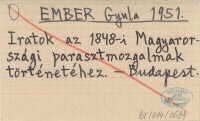 EMBER Gyula 1951.
Iratok az 1848-i Magyaror-
szági parasztmozgalmak
történetéhez. – Budapest.